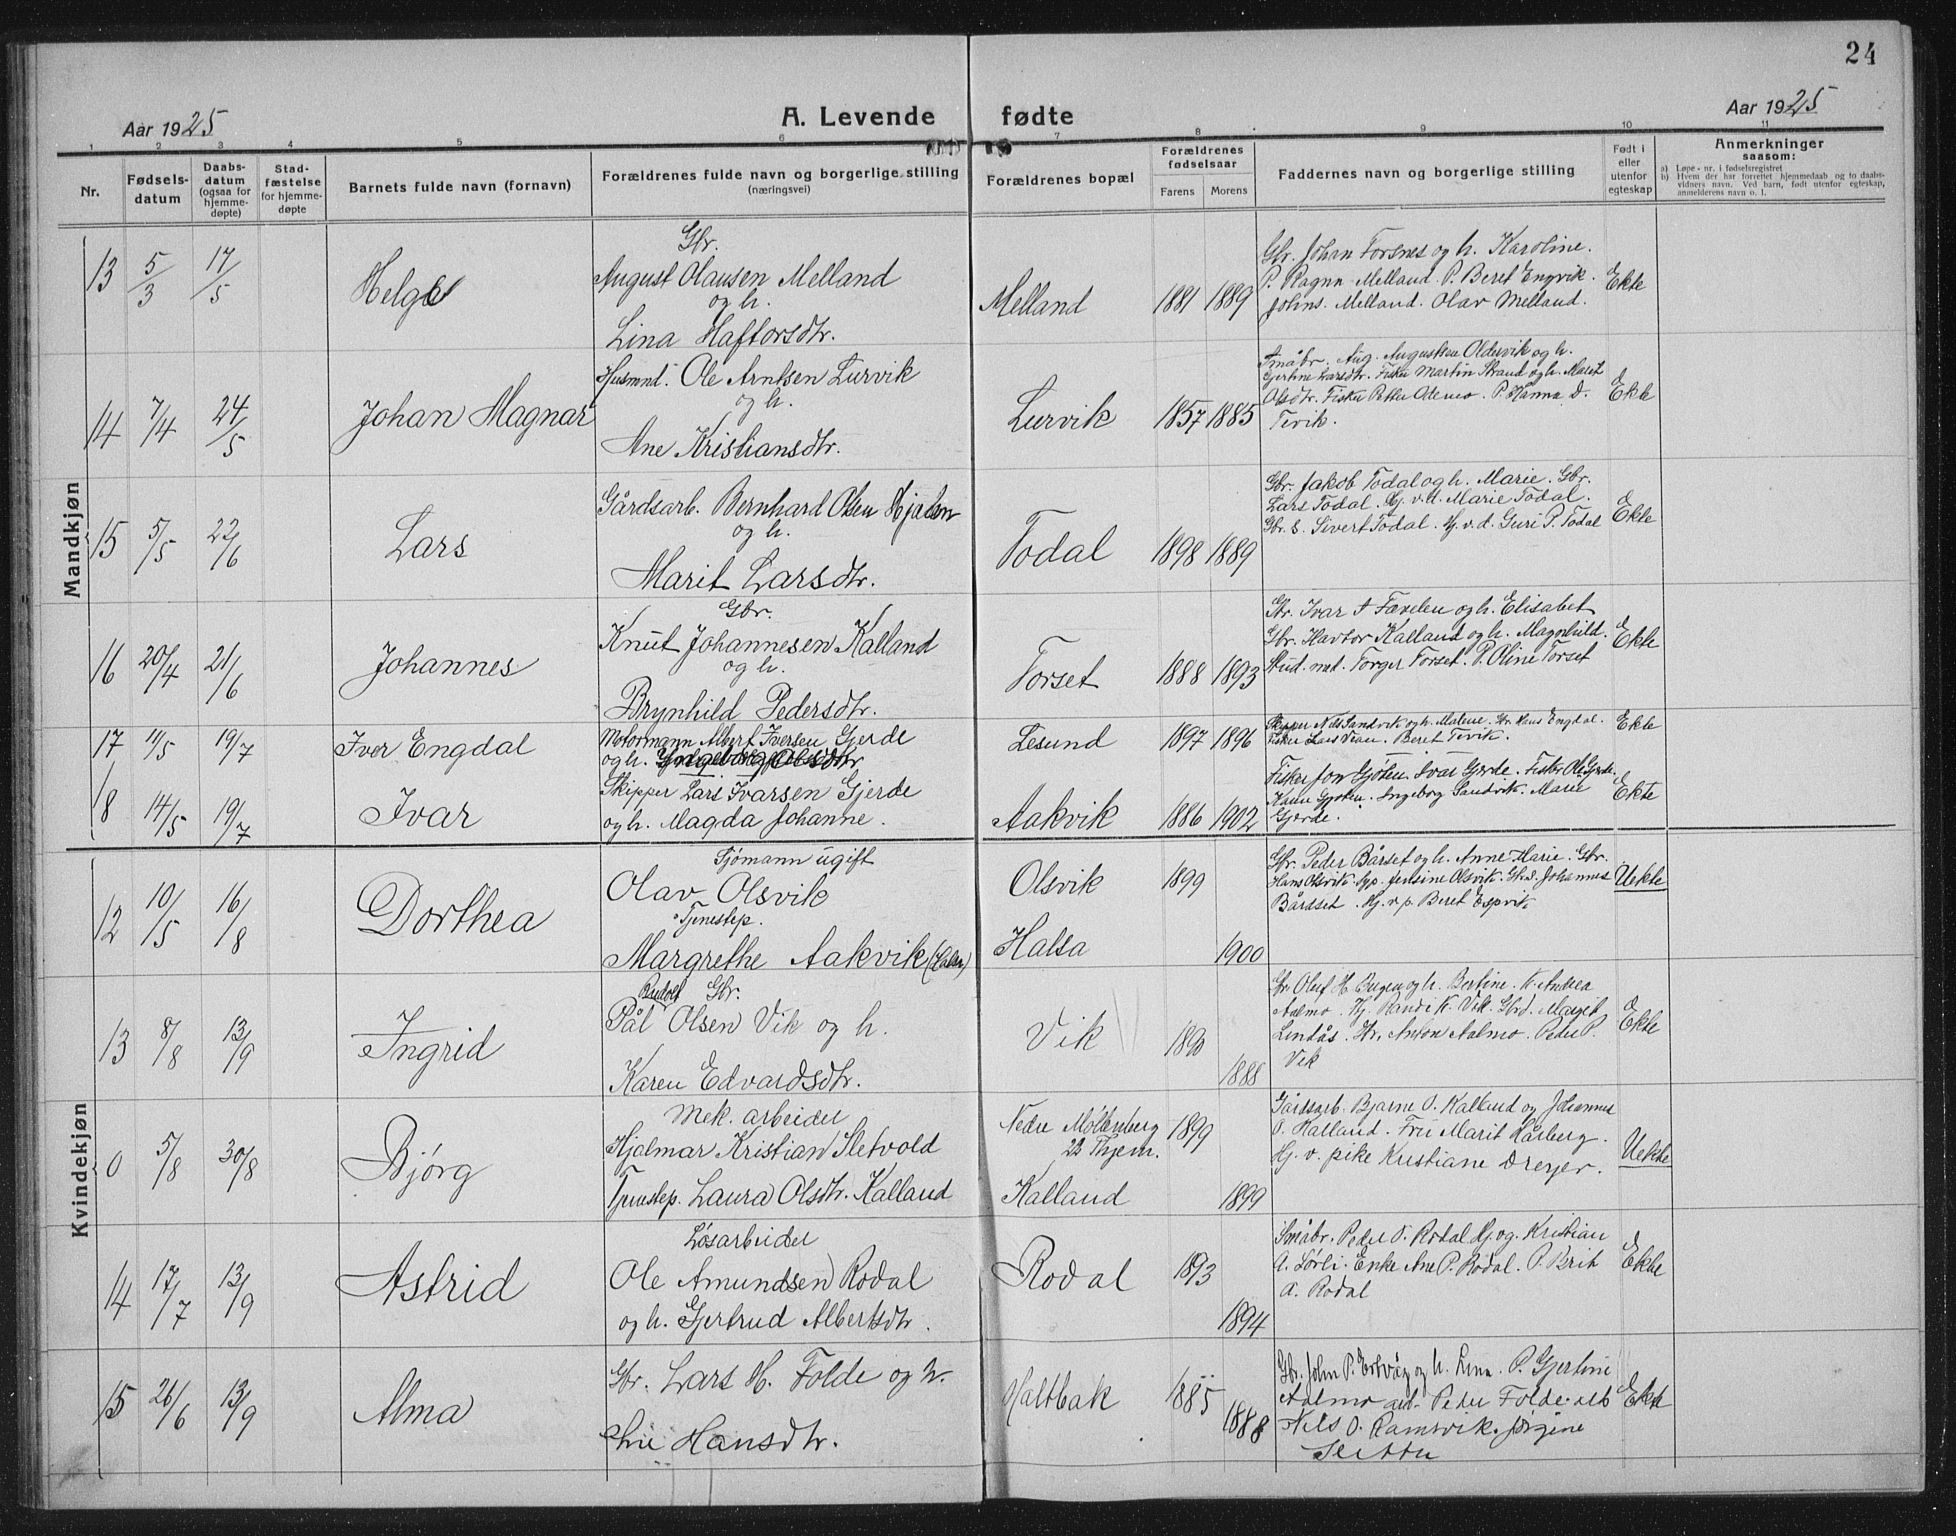 24
Aar 1925
A. Levende fødte
Aar 1925
1 2 3 4 5 6 7 8 9 10 11
Nr.
Fødsels-
datum
Daabs-
datum
(ogsaa for
hjemme-
døpte)
Stad-
fæstelse
for hjemme-
døpte
Barnets fulde navn (fornavn)
Forældrenes fulde navn og borgerlige stilling
(næringsvei)
Forældrenes bopæl
Forældrenes
fødselsaar
Farens Morens
Faddernes navn og borgerlige stilling
Født i
eller
utenfor
egteskap
Anmerkninger
saasom:
a) Løpe-nr. i fødselsregistret
b) Hvem der har forrettet hjemmedaab og to daabs-
vidners navn. Ved barn, født utenfor egteskap,
anmelderens navn o. l.
Mandkjøn
13 5/3 17/5 Helge
Gbr.
August Olausen Melland
og h.
Lina Haftorsdtr.
Melland 1881 1889
Gbr. Johan Forsnes og h. Karoline.
P. Ragna Melland. P. Beret Engvik.
Johns. Melland. Olav Melland.
Ekte
14 7/4 24/5 Johan Magnar
Husmnd. Ole Arntsen Lurvik
og h.
Ane Kristiansdtr.
Lurvik 1857 1885
Småbr. Aug. Augustsen Oldervik og h.
Gjertine Larsdtr. Fisker Martin Strand og h. Marit
Olsdtr. Fisker Petter Otemo. P. Hanna D.
Tevik.
Ekte
15 5/5 22/6 Lars
Gårdsarb. Bernhard Olsen Hjalen
og h.
Marit Larsdtr.
Todal 1898 1889
Gbr. Jakob Todal og h. Marie. Gbr.
Lars Todal. Hj. v. d. Marie Todal.
Gbr. s. Sivert Todal. Hj. v. d. Guri P. Todal
Ekte
16 20/4 21/6 Johannes
Gbr.
Knut Johannesen Kalland
og h.
Brynhild Pedersdtr.
Torset 1888 1893
Gbr. Ivar A Fævelen og h. Elisabet
Gbr. Havtor Kalland og h. Magnhild.
Stud. mat. Torger Torset. P. Oline Torset
Ekte
17 11/5 19/7 Iver Engdal
Motormann Albert Iversen Gjerde
og h. Olsdtr
Lesund 1897 1896
Skipper Nils Sandvik og h. Malene. Gbr. Hans Engdal.
Fisker Lars Vian. Beret Tevik.
Ekte
18 14/5 19/7 Ivar
Skipper Lars Ivarsen Gjerde
og h. Magda Johanne.
Aakvik 1886 1902
Fisker Jon Gjøten. Ivar Gjerde. Fisker Ole Gjerde.
Karen Gjøten. Ingeborg Sandvik. Marie
Gjerde.
Ekte
Kvindekjøn
12 10/5 16/8 Dorthea
Sjømann ugift
Olav Olsvik
Tjenestep.
Margrethe Aakvik (Halsa)
Olsvik 1899
Halsa 1900
Gbr. Peder Bårset og h. Anne Marie. Gbr.
Hans Olsvik. Jensine Olsvik. Gbrd. Johannes
Bårdset. Hj. v. p. Beret Espvik
Uekte
13 8/8 13/9 Ingrid
Rudolf Gbr.
Pål Olsen Vik og h.
Karen Edvardsdtr.
Vik 1890
1888
Gbr. Oluf H. Bugen og h. Bertine. K. Andrea
Aalmo. Hj. Randi K. Vik. Gbrd. Margit
Lindås. Gbr. Anton Aalmo. Peder P.
Vik
Ekte
0 5/8 30/8 Bjørg
Mek. arbeider
Hjalmar Kristian Sletvold
Tjenestep. Laura Olsdtr. Kalland
Nedre Møllenberg 1899
28 Thjem.
Kalland 1899
Gårdsarb. Bjarne O. Kalland og Johannes
O. Kalland. Fru Marit Hårberg.
Hj. v. pike Kristiane Dreyer.
Uekte
14 17/7 13/9 Astrid
Løsarbeider
Ole Amundsen Rodal
og h. Gjertrud Albertsdtr.
Rodal 1893
1894
Småbr. Peder O. Rodal. Hj. og. Kristian
A. Sørli. Enke Ane P. Rodal. P. Brit
A. Rodal
Ekte
15 26/6 13/9 Alma
Gbr. Lars H. Folde og h.
Lue Hansdtr.
Haltbak 1885
1888
Gbr. John P. Ertvåg og h. Lina. P. Gjertine
Aalmo arb. Peder Folde. arb
Nils O. Ramsvik. Jørgine
Slettu
Ekte